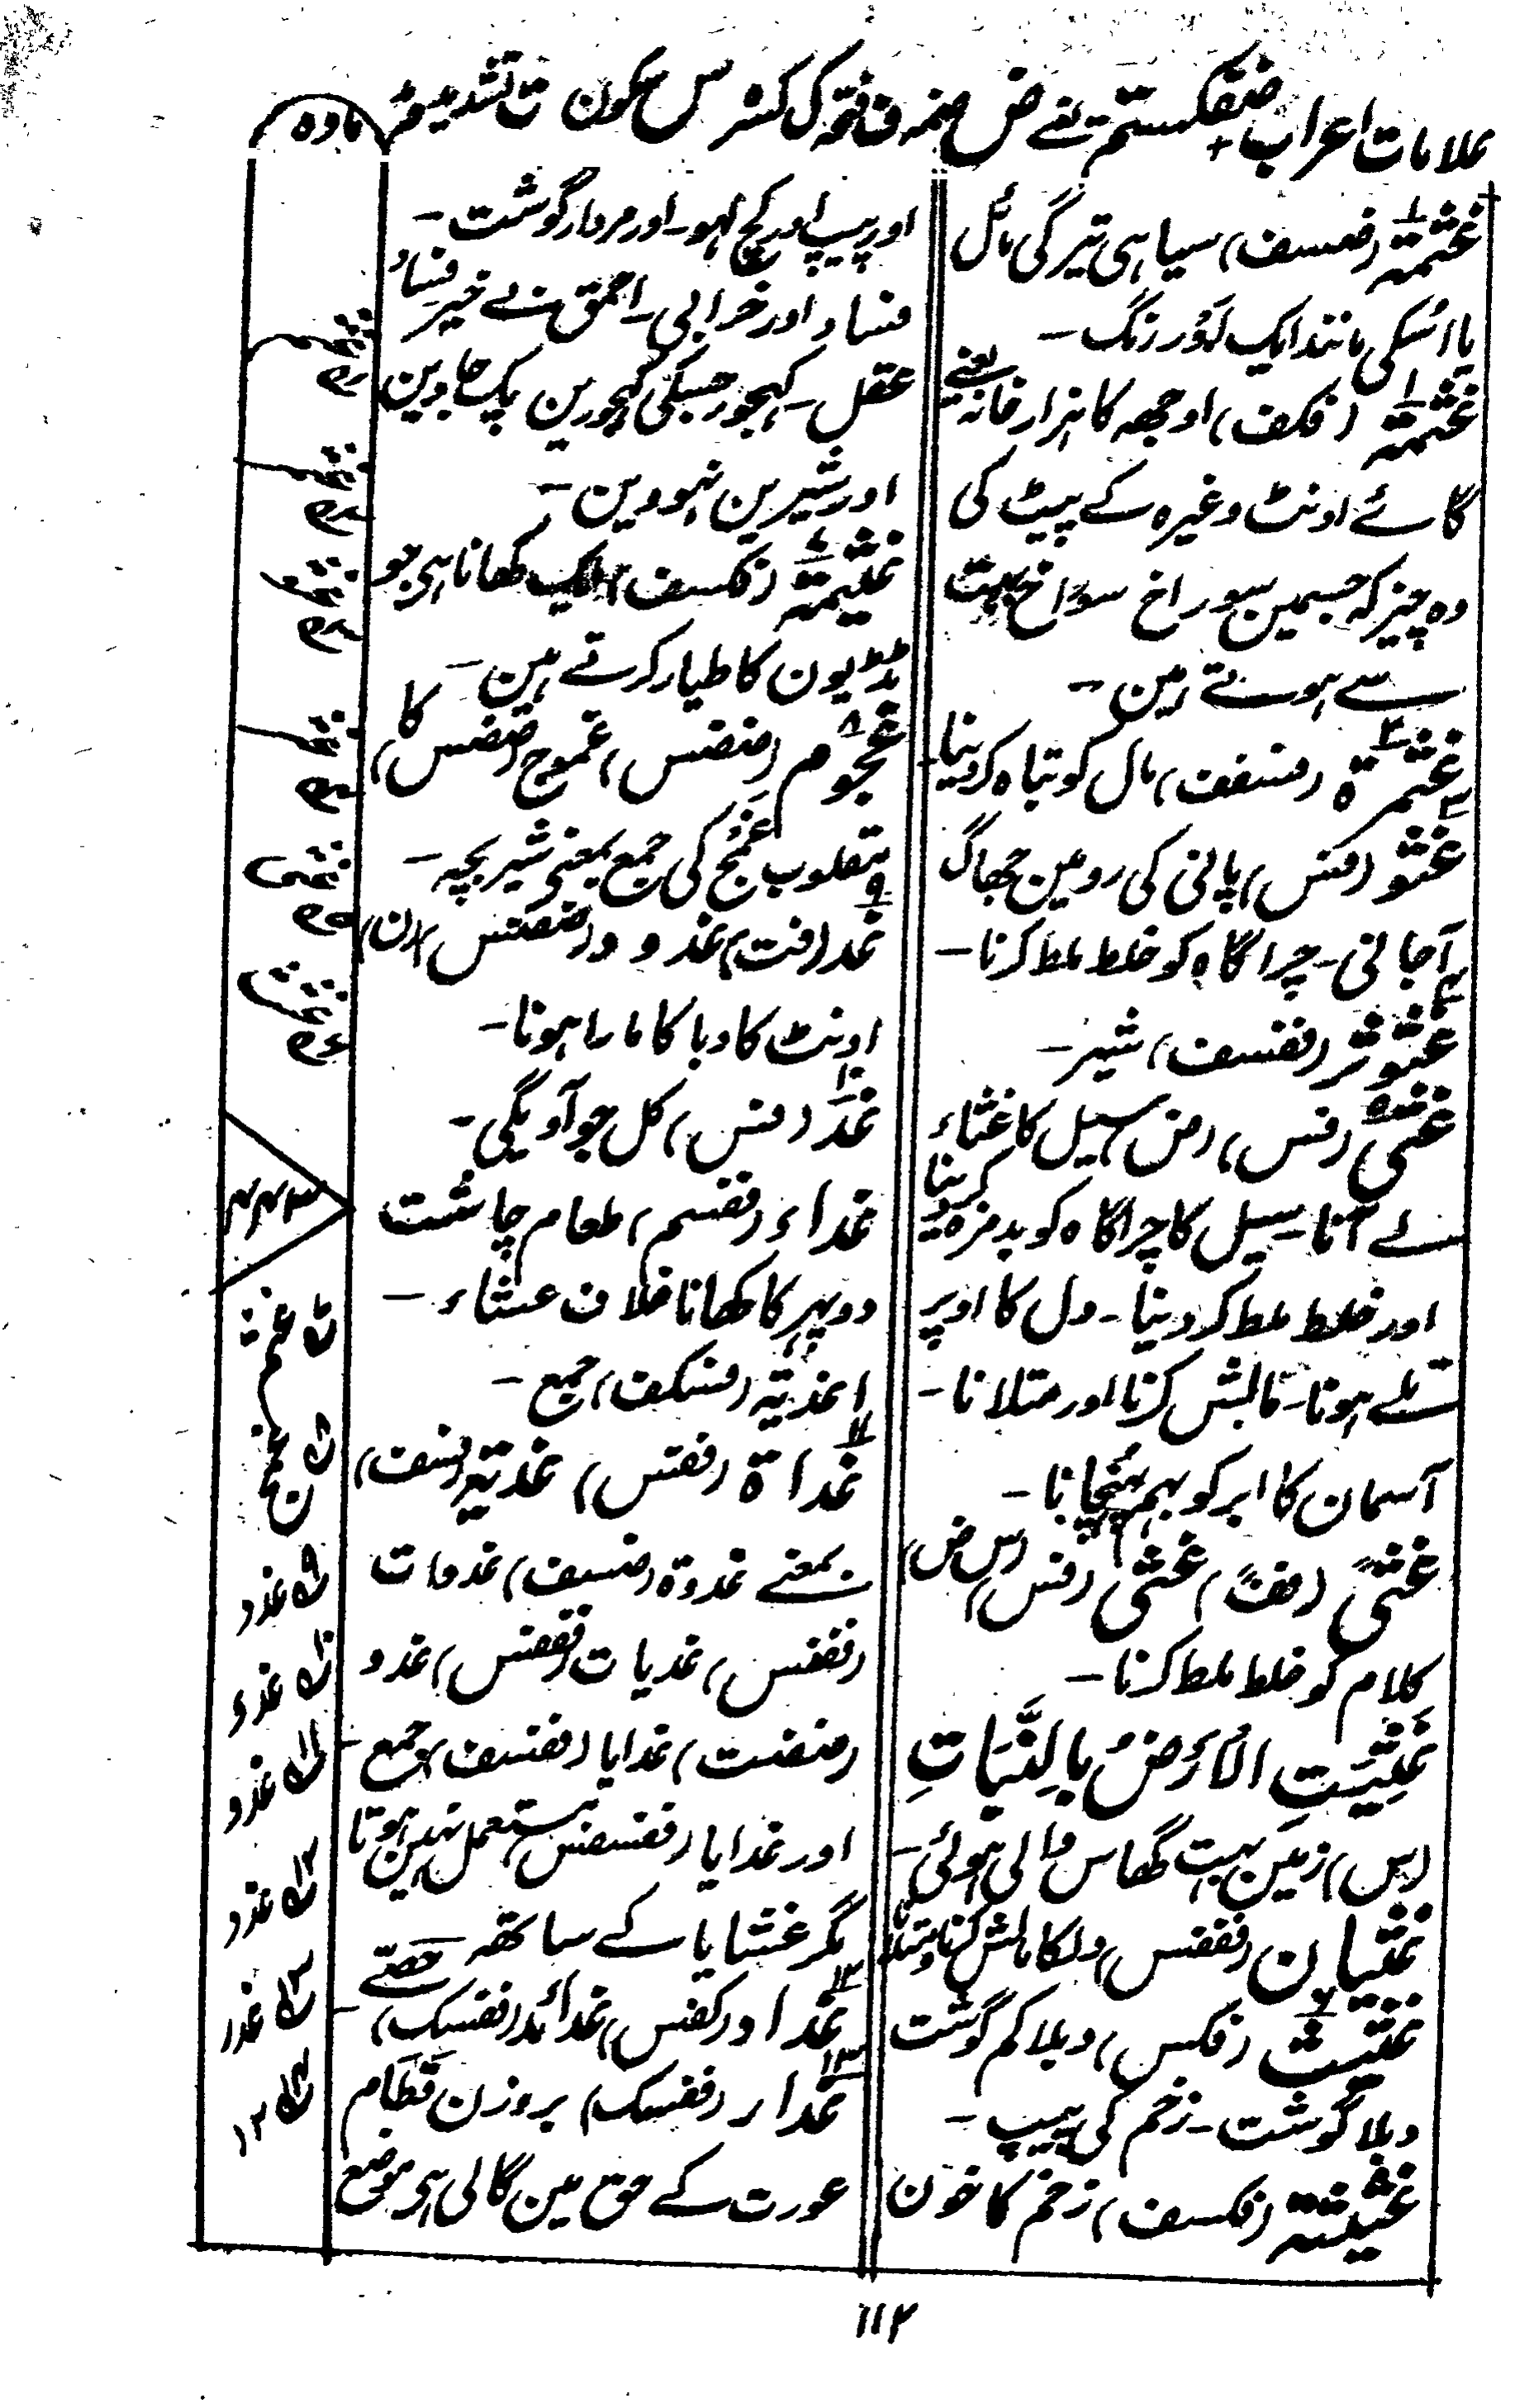 علامات اعراب ضفکستم یعنے ض ضمہ ف فتحہ ک کسر س سکون ت تشدید م مد
مادہ
غثمۃ (ضسف) سیاہی تیرگی مائل
یا اسکی مانند ایک اور رنگ ۔
غثمۃ (فکف) اوجھہ کا ہزار خانہ یعنے
گائے اونٹ وغیرہ کے پیٹ کی
وہ چیز کہ جسمین سوراخ سوراخ بہت
سے ہوتے ہین ۔
غثمرۃ (فسفف) مال کو تباہ کر دینا ۔
غثو (فس) پانی کی رو مین جھاگ
آجانی ۔ چراگاہ کو خلط ملط کرنا ۔
غثوثر (ففسف) شیر ۔
غثی (فس) (ض) سیل کا غثاء
لے آنا ۔ سیل کا چراگاہ کو بدمزہ کر دینا
اور خلط ملط کر دینا ۔ دل کا اوپر
تلے ہونا ۔ مالش کرنا اور متلانا ۔
آسمان کا ابر کو بہم پہنچانا ۔
غثی (فف) غثی (فس) (س ض)
کلام کو خلط ملط کرنا ۔
غَثِیَتِ الْاَرْضُ بِالنَّبَاتِ
(س) زمین بہت گھاس والی ہوئی ۔
غثیان (فففس) دلکا مالش کرنا و متلانا
غثیث (فکس) دبلا کم گوشت
دبلا گوشت ۔ زخم کی پیپ ۔
غثیثۃ (فکسف) زخم کا خون
اور پیپ اور کچ لہو ۔ اور مردار گوشت ۔
فساد اور خرابی ۔ احمق بے خیر فساد
عقل ۔ کہجور جسکی کہجورین پک جاوین
اور شیرین نہووین ۔
غثیمۃ (فکسف) ایک کھانا ہی جو
ٹڈیون کا طیار کرتے ہین ۔
غجوم (ضضس) غموج (ضضس) کا
مقلوب غَمْج کی جمع بمعنی شیر بچہ ۔
غد (فت) غدود (ضضس) (ن)
اونٹ کا وبا کا مارا ہونا ۔
غد (فس) کل جو آویگی ۔
غداء (ففسم) طعام چاشت
دوپہر کا کھانا خلاف عشاء ۔
اغذیۃ (فسکف) جمع ۔
غداۃ (ففس) غدیۃ (فسف)
بمعنے غدوۃ (ضسف) غدوات
(فففس) غدیات (فففس) غدو
(ضضت) غدایا (ففسف) جمع ۔
اور غدایا (ففسفس) مستعمل نہین ہوتا
مگر عشایا کے ساتھہ
غداد (کفس) غدائد (ففسک) حصّے ۔
غدار (ففسک) بروزن قَطَام
عورت کے حق مین گالی ہی موضع
۴۴۳
غثم
غجم
غدد
غدو
غدو
غدد
غدر
۱۲
۱۱۴